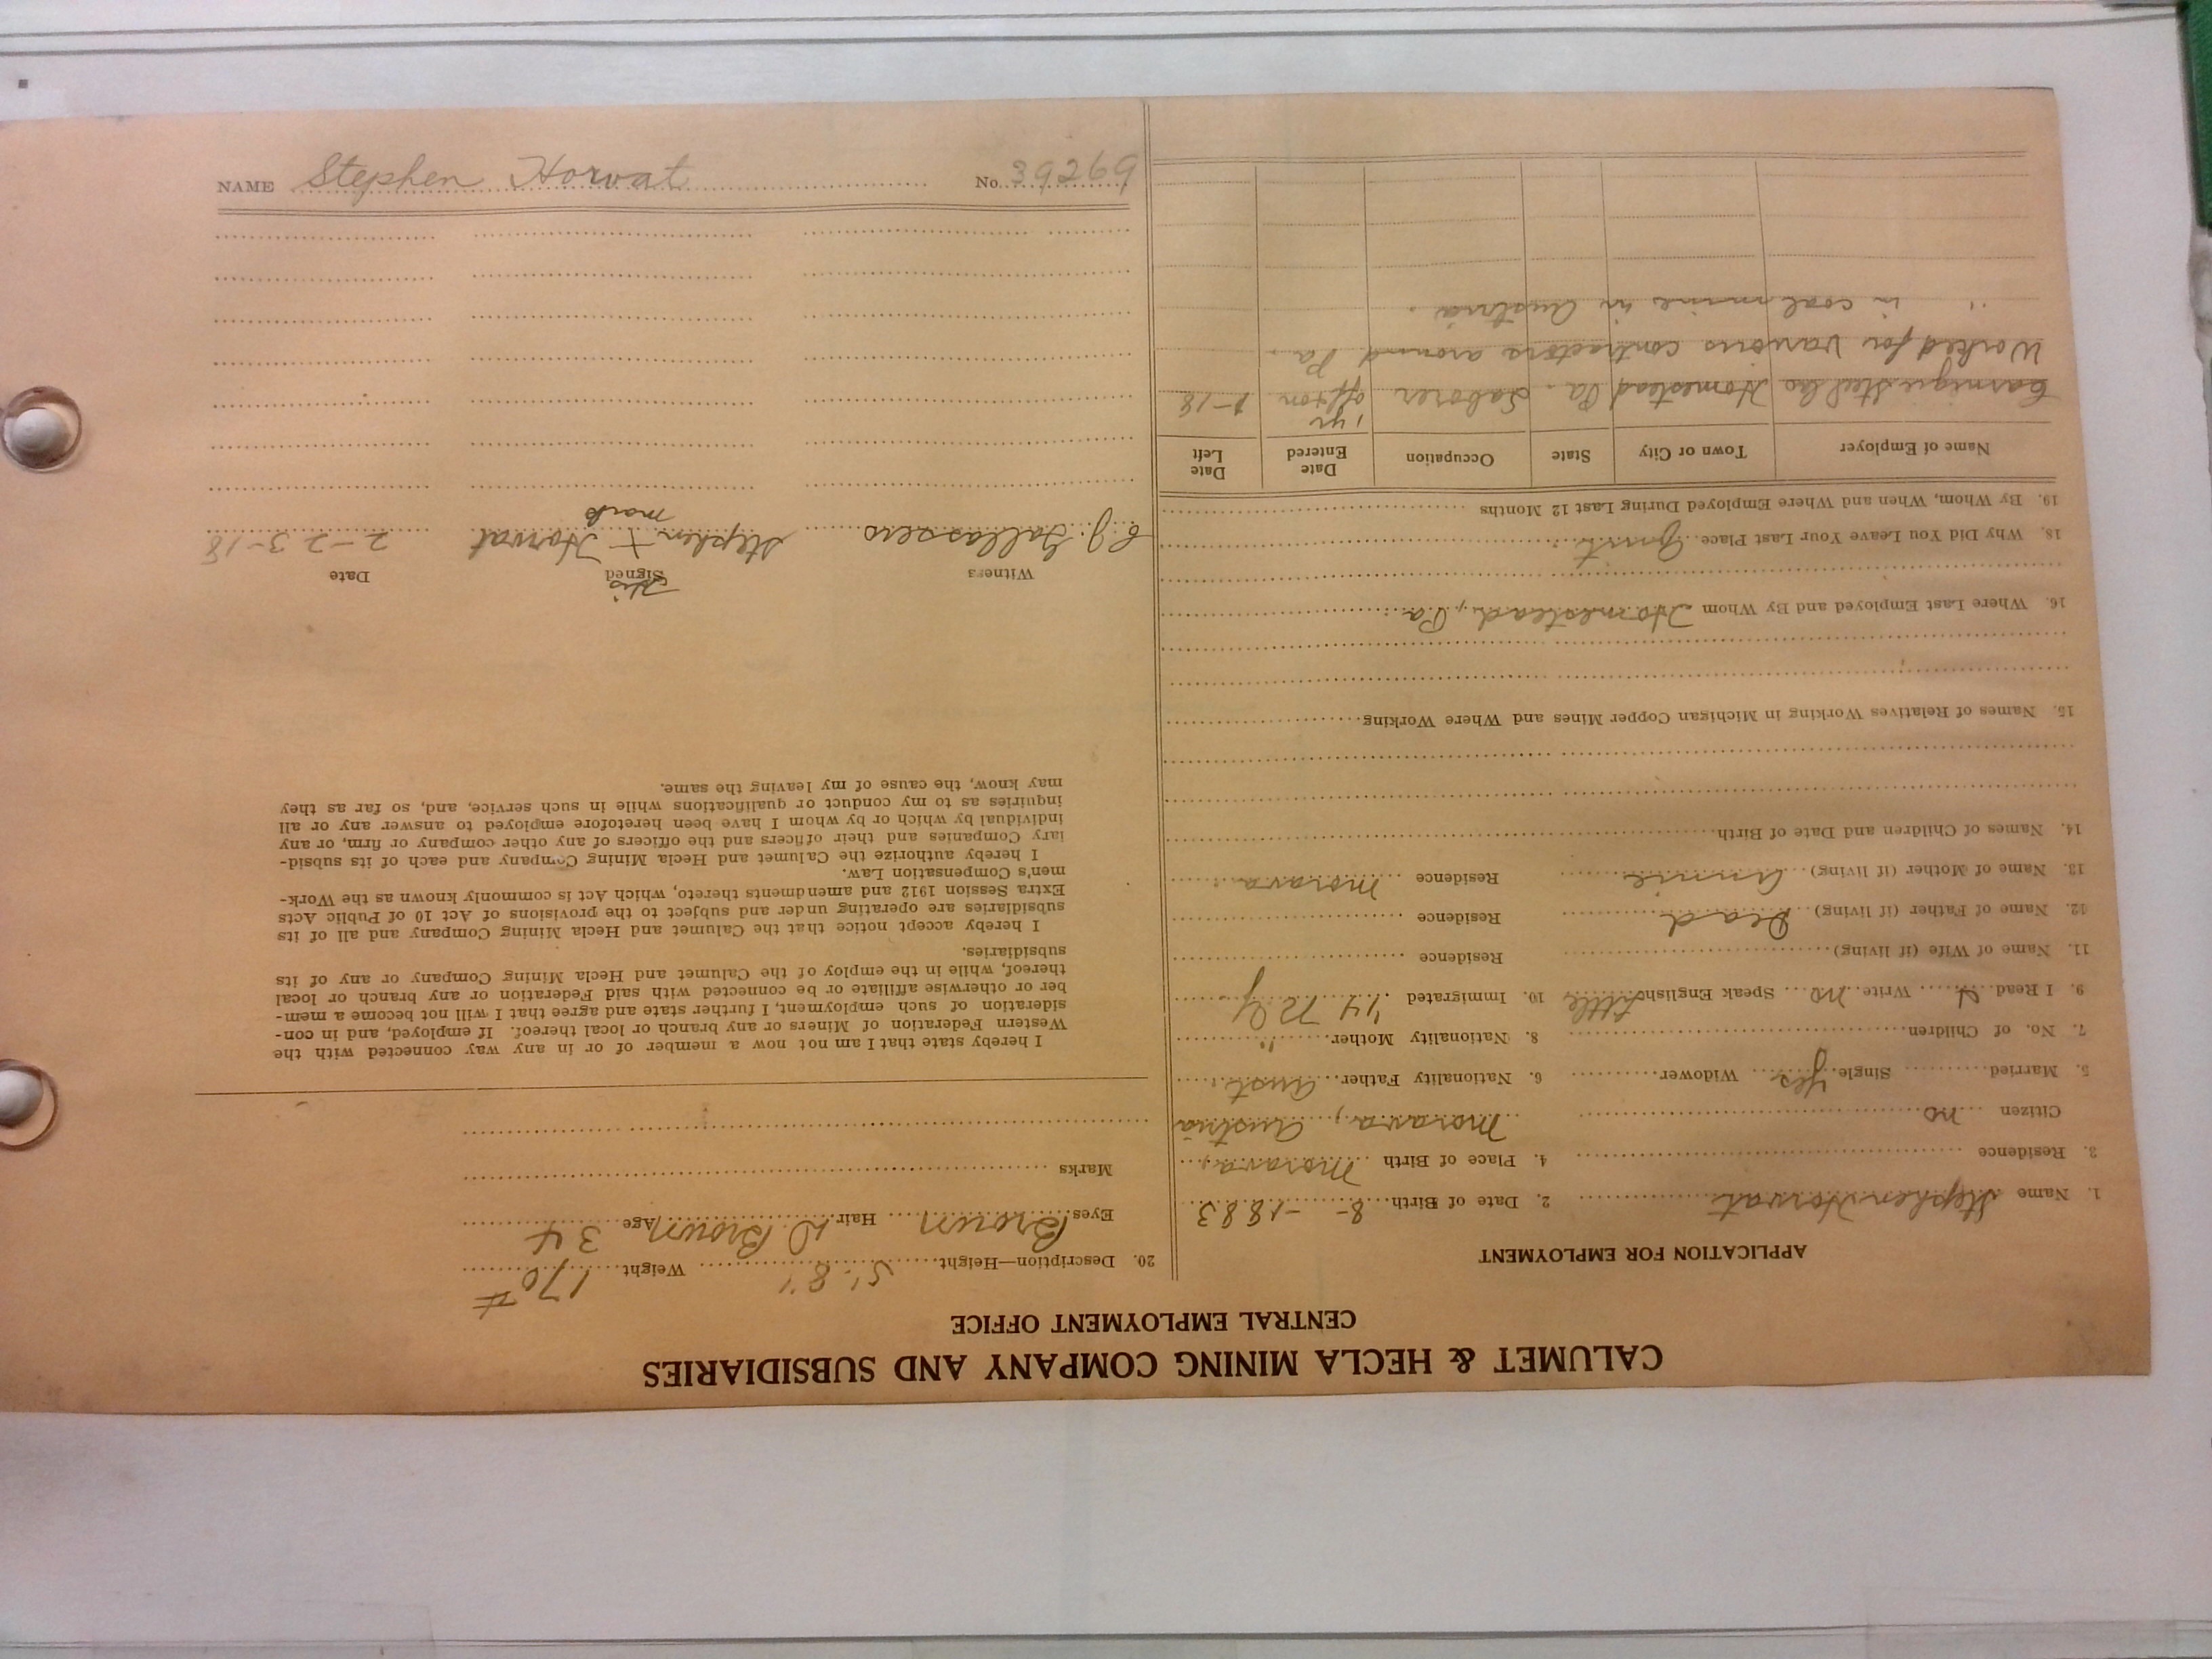 CALUMET & HECLA MINING COMPANY AND SUBSIDIARIES
CENTRAL EMPLOYMENT OFFICE
APPLICATION FOR EMPLOYMENT
1. Name Stephen Horvat 2. Date of Birth 8- -1883
3. Residence 4. Place of Birth Morava,
Citizen no Morava, Austria
5. Married Single yes Widower 6. Nationality Father Aust.
7. No. of Children 8. Nationality Mother "
9. I Read Write no Speak English little 10. Immigrated '14
11. Name of Wife (if living) Residence
12. Name of Father (if living) Dead Residence
13. Name of Mother (if living) Annie Residence Morava
14. Names of Children and Date of Birth
15. Names of Relatives Working in Michigan Copper Mines and Where Working
16. Where Last Employed and By Whom Homestead, Pa.
18. Why Did You Leave Your Last Place Quit.
19. By Whom, When and Where Employed During Last 12 Months
Name of Employer Town or City State Occupation Date Entered Date Left
1 yr
Carnigie Steel Co Homestead Pa. Laborer off & on 1-18
Worked for various contractors around Pa.
" in coal mine in Austria.
20. Description—Height 5'.8" Weight 170 #
Eyes Brown Hair D Brown Age 34
Marks
I hereby state that I am not now a member of or in any way connected with the
Western Federation of Miners or any branch or local thereof. If employed, and in con-
sideration of such employment, I further state and agree that I will not become a mem-
ber or otherwise affiliate or be connected with said Federation or any branch or local
thereof, while in the employ of the Calumet and Hecla Mining Company or any of its
subsidiaries.
I hereby accept notice that the Calumet and Hecla Mining Company and all of its
subsidiaries are operating under and subject to the provisions of Act 10 of Public Acts
Extra Session 1912 and amendments thereto, which Act is commonly known as the Work-
men's Compensation Law.
I hereby authorize the Calumet and Hecla Mining Company and each of its subsid-
iary Companies and their officers and the officers of any other company or firm, or any
individual by which or by whom I have been heretofore employed to answer any or all
inquiries as to my conduct or qualifications while in such service, and, so far as they
may know, the cause of my leaving the same.
Witness Signed Date
His
Stephen + Horvat 2-23-18
mark
NAME Stephen Horvat No. 39269